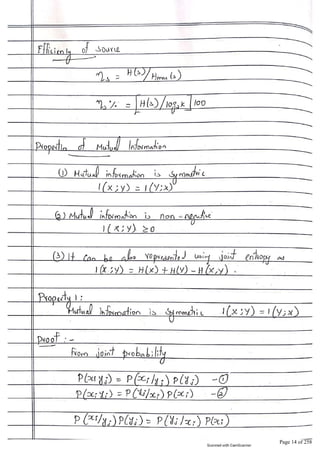 Efficiency of source
ηs = H(s)/Hmax(s)
ηs % = [H(s)/log2k] 100
Properties of Mutual Information
(1) Mutual information is symmetric
I(x;y) = I(y;x)
(2) Mutual information is non-negative
I(x;y) ≥0
(3) It can be also represented using joint entropy as
I(x;y) = H(x) + H(y) - H(x,y).
Property 1:
Mutual Information is symmetric I(x;y) = I(y;x)
Proof :-
From joint probability
P(xi yj) = P(xi/yj) P(yj) -①
P(xi yj) = P(yj/xi) P(xi) -②
P(xi/yj) P(yj) = P(yj/xi) P(xi)
Page 14 of 258
Scanned with CamScanner